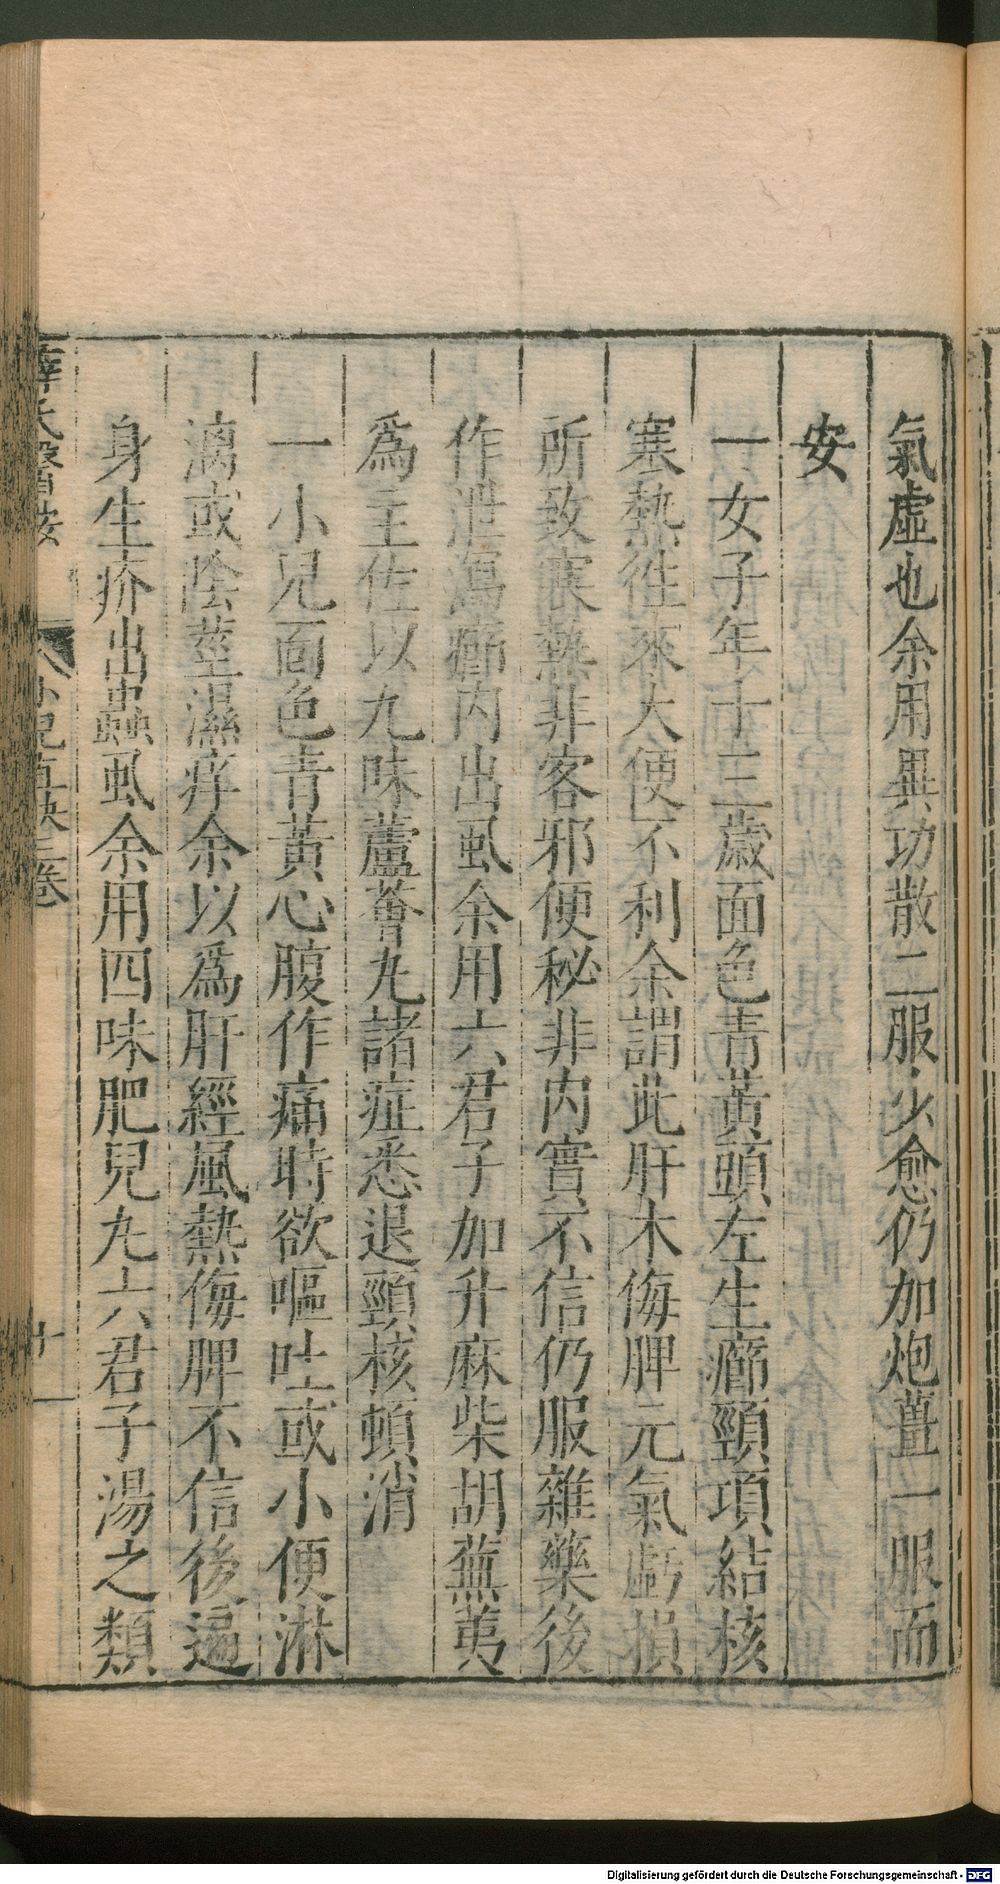 氣虛也余用異功散二服少愈仍加炮薑一服而
安
一女子年十三歲面色青黃頭左生癤頸項結核
寒熱徃來大便不利余謂此肝木侮脾元氣虧損
所致寒熱非客邪便秘非內實不信仍服雜藥後
作泄瀉癤內出虱余用六君子加升麻柴胡蕪荑
爲主佐以九味蘆薈丸諸症悉退頸核頓消
一小兒面色青黃心腹作痛時欲嘔吐或小便淋
漓或陰莖濕痒余以爲肝經風熱侮脾不信後遍
身生疥出蟲虱余用四味肥兒丸六君子湯之類
薛氏醫按 小兒直訣三卷 十一
Digitalisierung gefördert durch die Deutsche Forschungsgemeinschaft - DFG